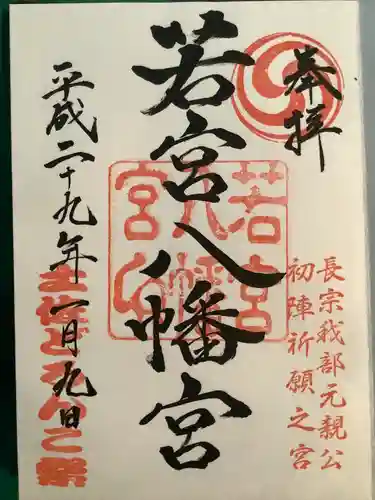 奉拝
長宗我部元親公
初陣祈願之宮
若宮八幡宮
若宮
八幡
宮印
平成二十九年一月九日